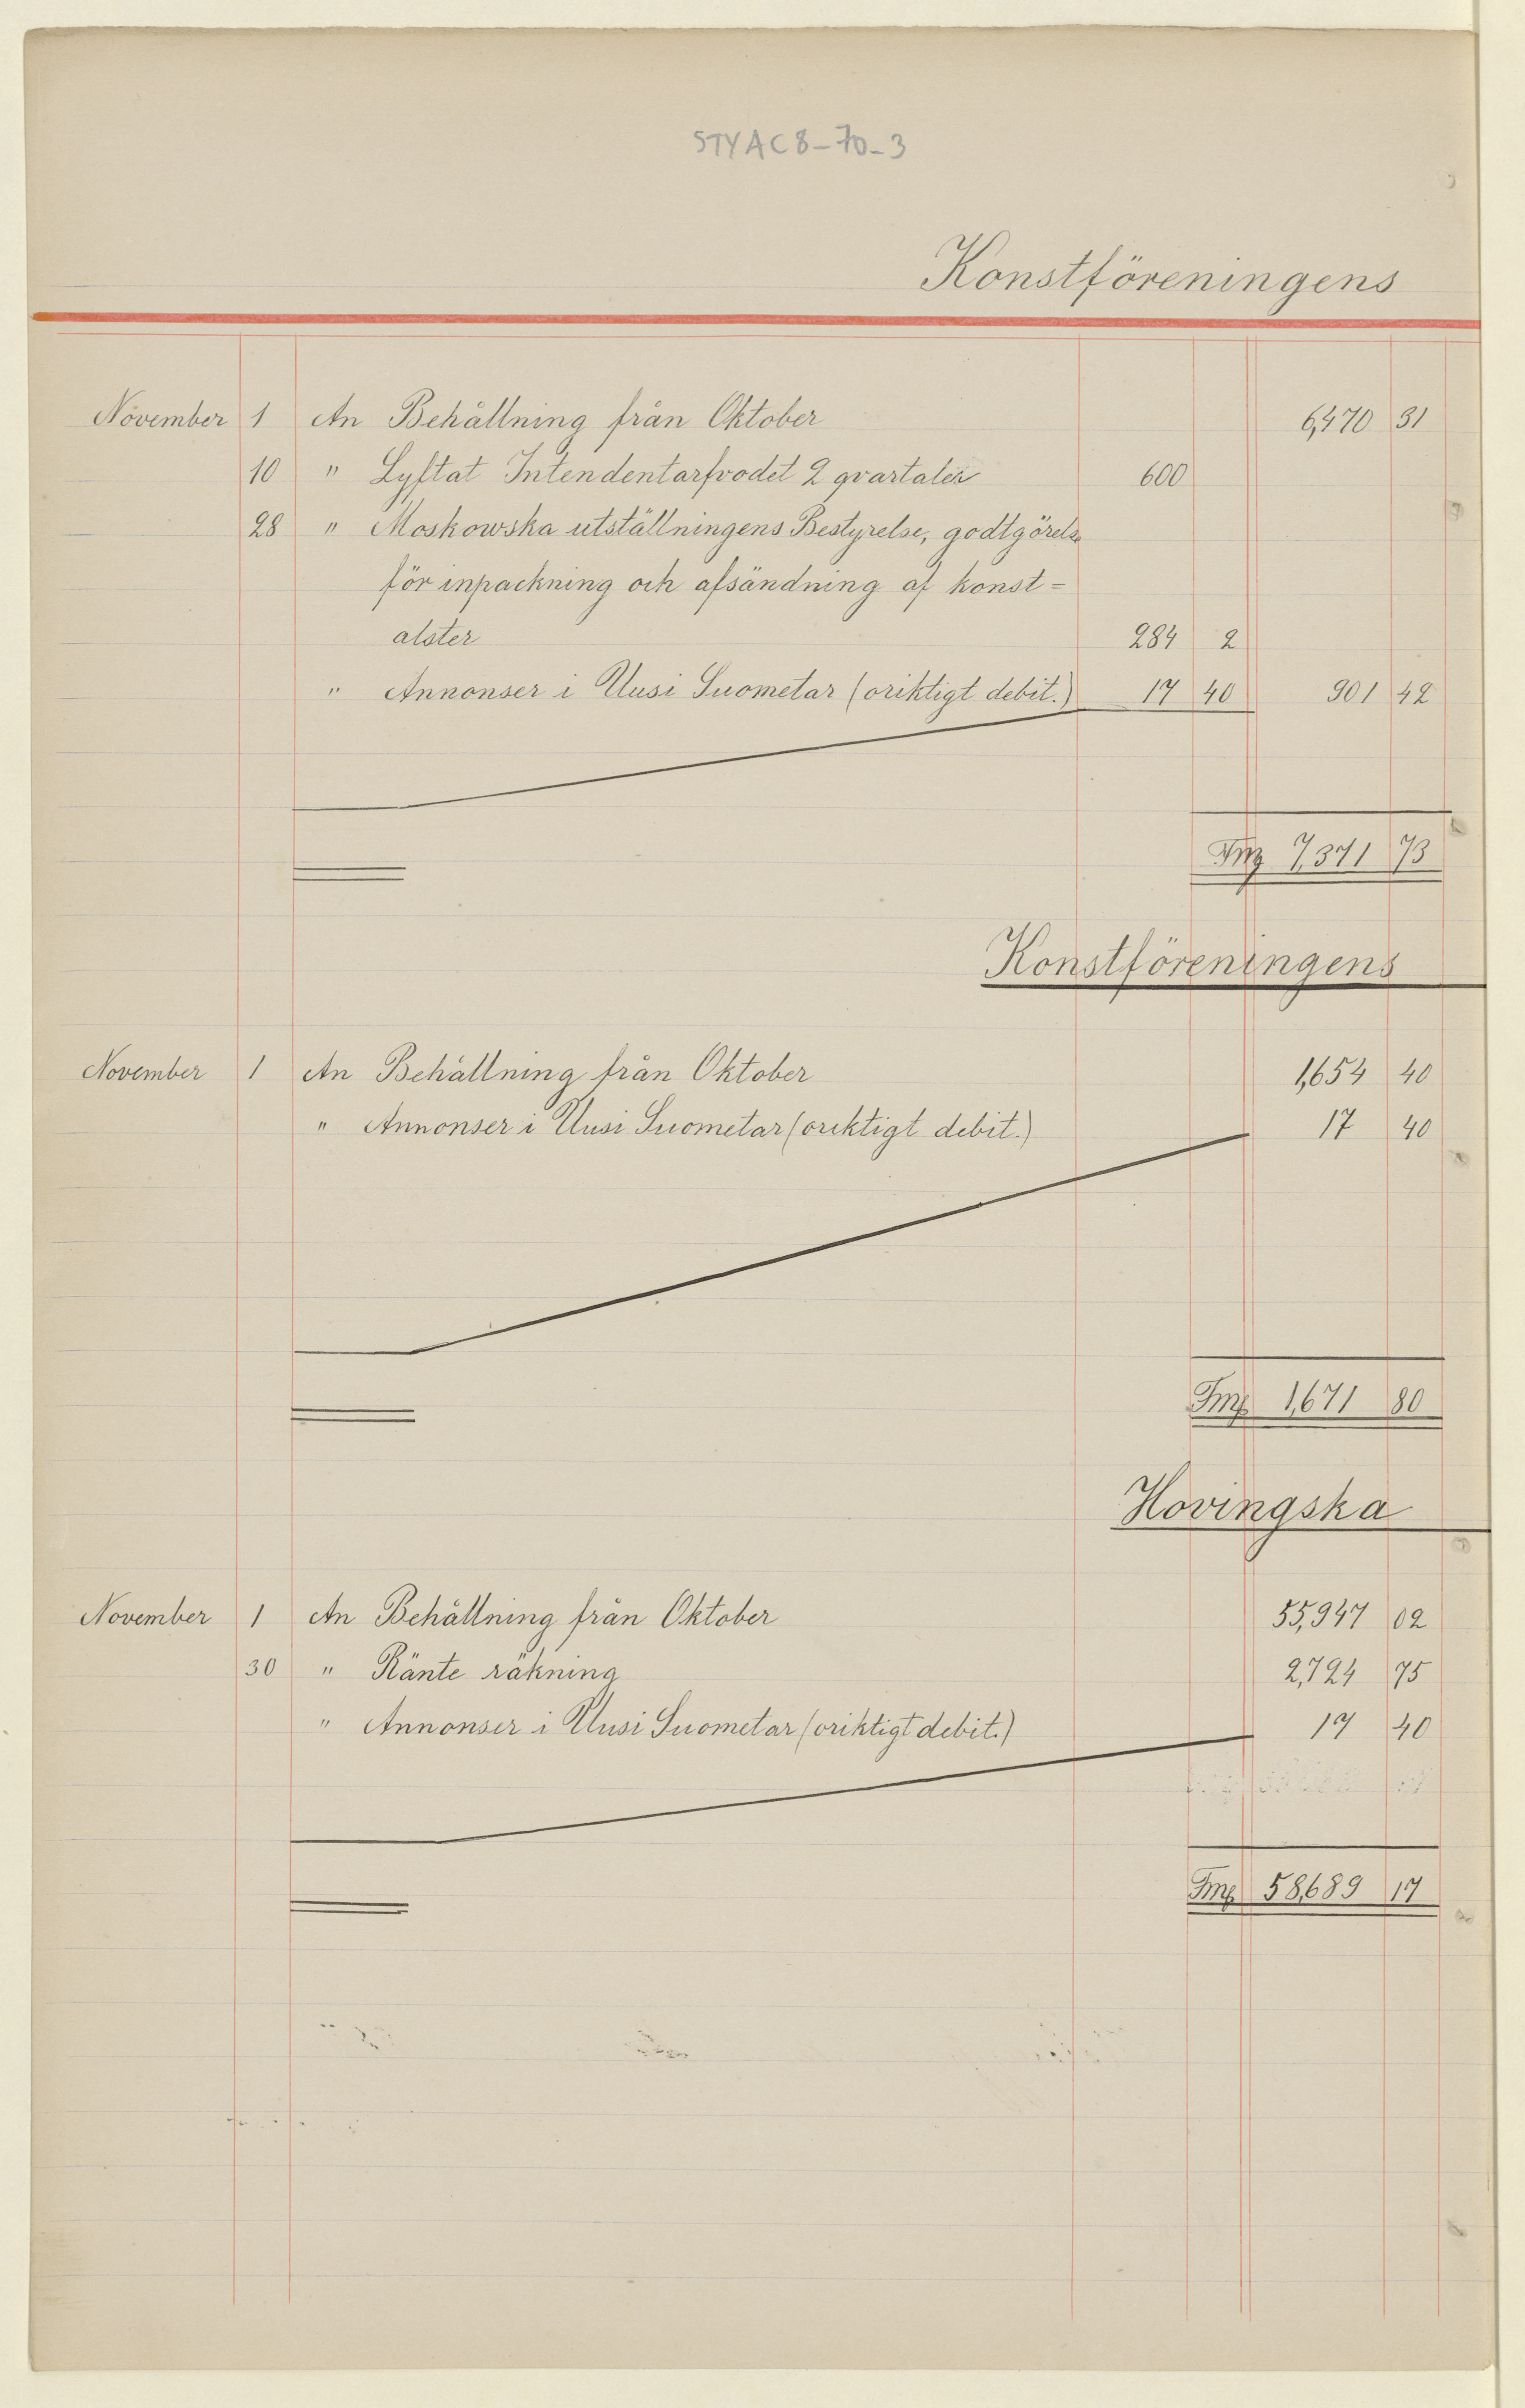 STYAC8-70-3
Konstföreningens
November 1 An Behållning från Oktober 6,470 31
10 " Lyftat Intendentarfvodet 2 qvartaler 600
28 " Moskowska utställningens Bestyrelse, godtgörelse
för inpackning och afsändning af konst=
alster 284 2
" Annonser i Uusi Suometar (oriktigt debit.) 17 40 901 42
Fmk 7,371 73
Konstföreningens
November 1 An Behållning från Oktober 1,654 40
" Annonser i Uusi Suometar (oriktigt debit.) 17 40
Fmk 1,671 80
Hovingska
November 1 An Behållning från Oktober 55,947 02
30 " Ränte räkning 2,724 75
" Annonser i Uusi Suometar (oriktigt debit.) 17 40
Fmk 58,689 17